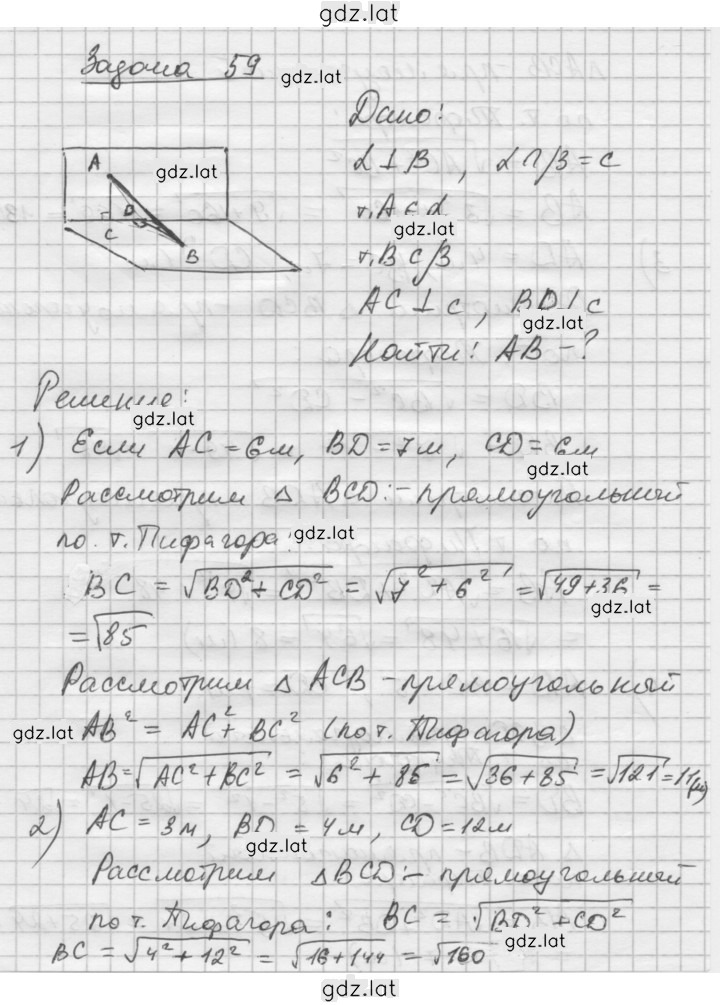 gdz.lat
Задача 59
gdz.lat
Дано:
α⊥β, α∩β = c
gdz.lat
т. A ∈ α
gdz.lat
т. B ⊂ β
AC ⊥ c, BD ⊥ c
gdz.lat
Найти: AB - ?
A
D
C
B
Решение:
gdz.lat
1) Если AC = 6м, BD = 7м, CD = 6м
gdz.lat
Рассмотрим △ BCD: - прямоугольный
по т. Пифагора:
gdz.lat
BC = √(BD² + CD²) = √(7² + 6²) = √(49+36) =
gdz.lat
= √85
Рассмотрим △ ACB - прямоугольный
gdz.lat
AB² = AC² + BC² (по т. Пифагора)
AB = √(AC² + BC²) = √(6² + 85) = √(36 + 85) = √121 = 11(м)
2) AC = 3м, BD = 4м, CD = 12м
gdz.lat
Рассмотрим △BCD: - прямоугольный
по т. Пифагора: BC = √(BD² + CD²)
gdz.lat
BC = √(4² + 12²) = √(16 + 144) = √160
gdz.lat